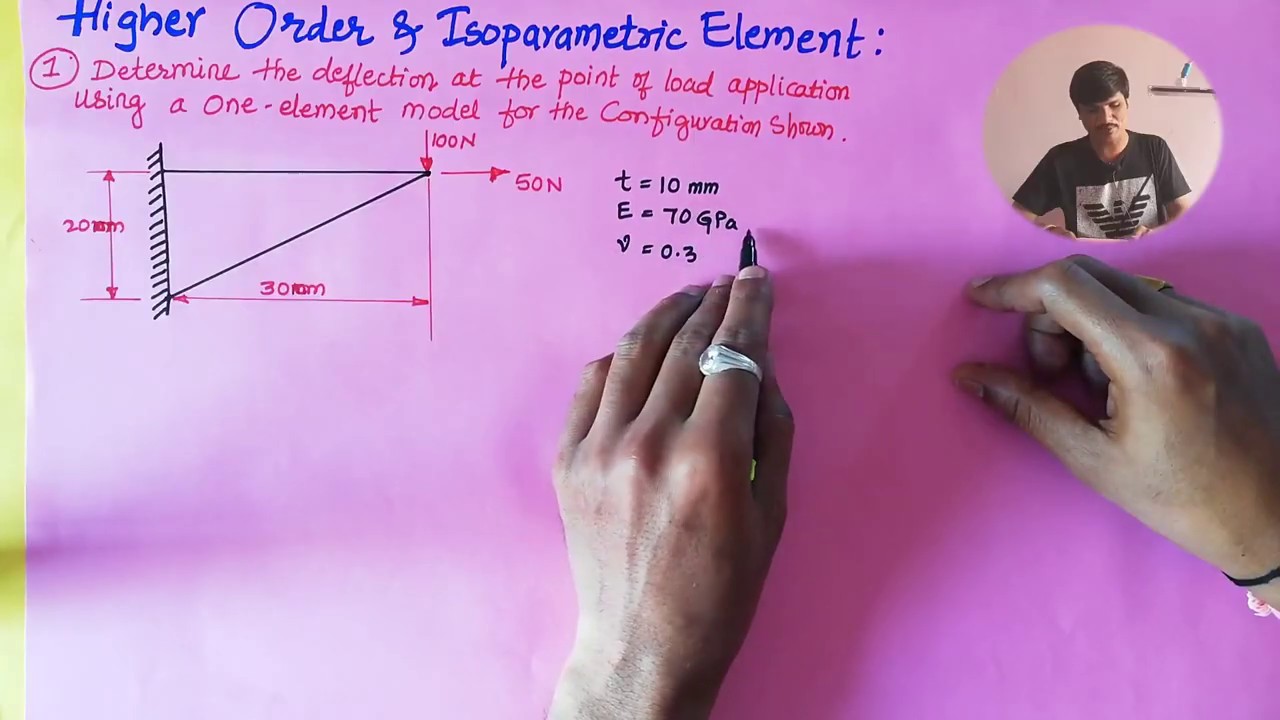 Higher Order & Isoparametric Element:
1 Determine the deflection at the point of load application
using a One-element model for the Configuration Shown.
100N
50N
20mm
30mm
t = 10 mm
E = 70 GPa
ν = 0.3